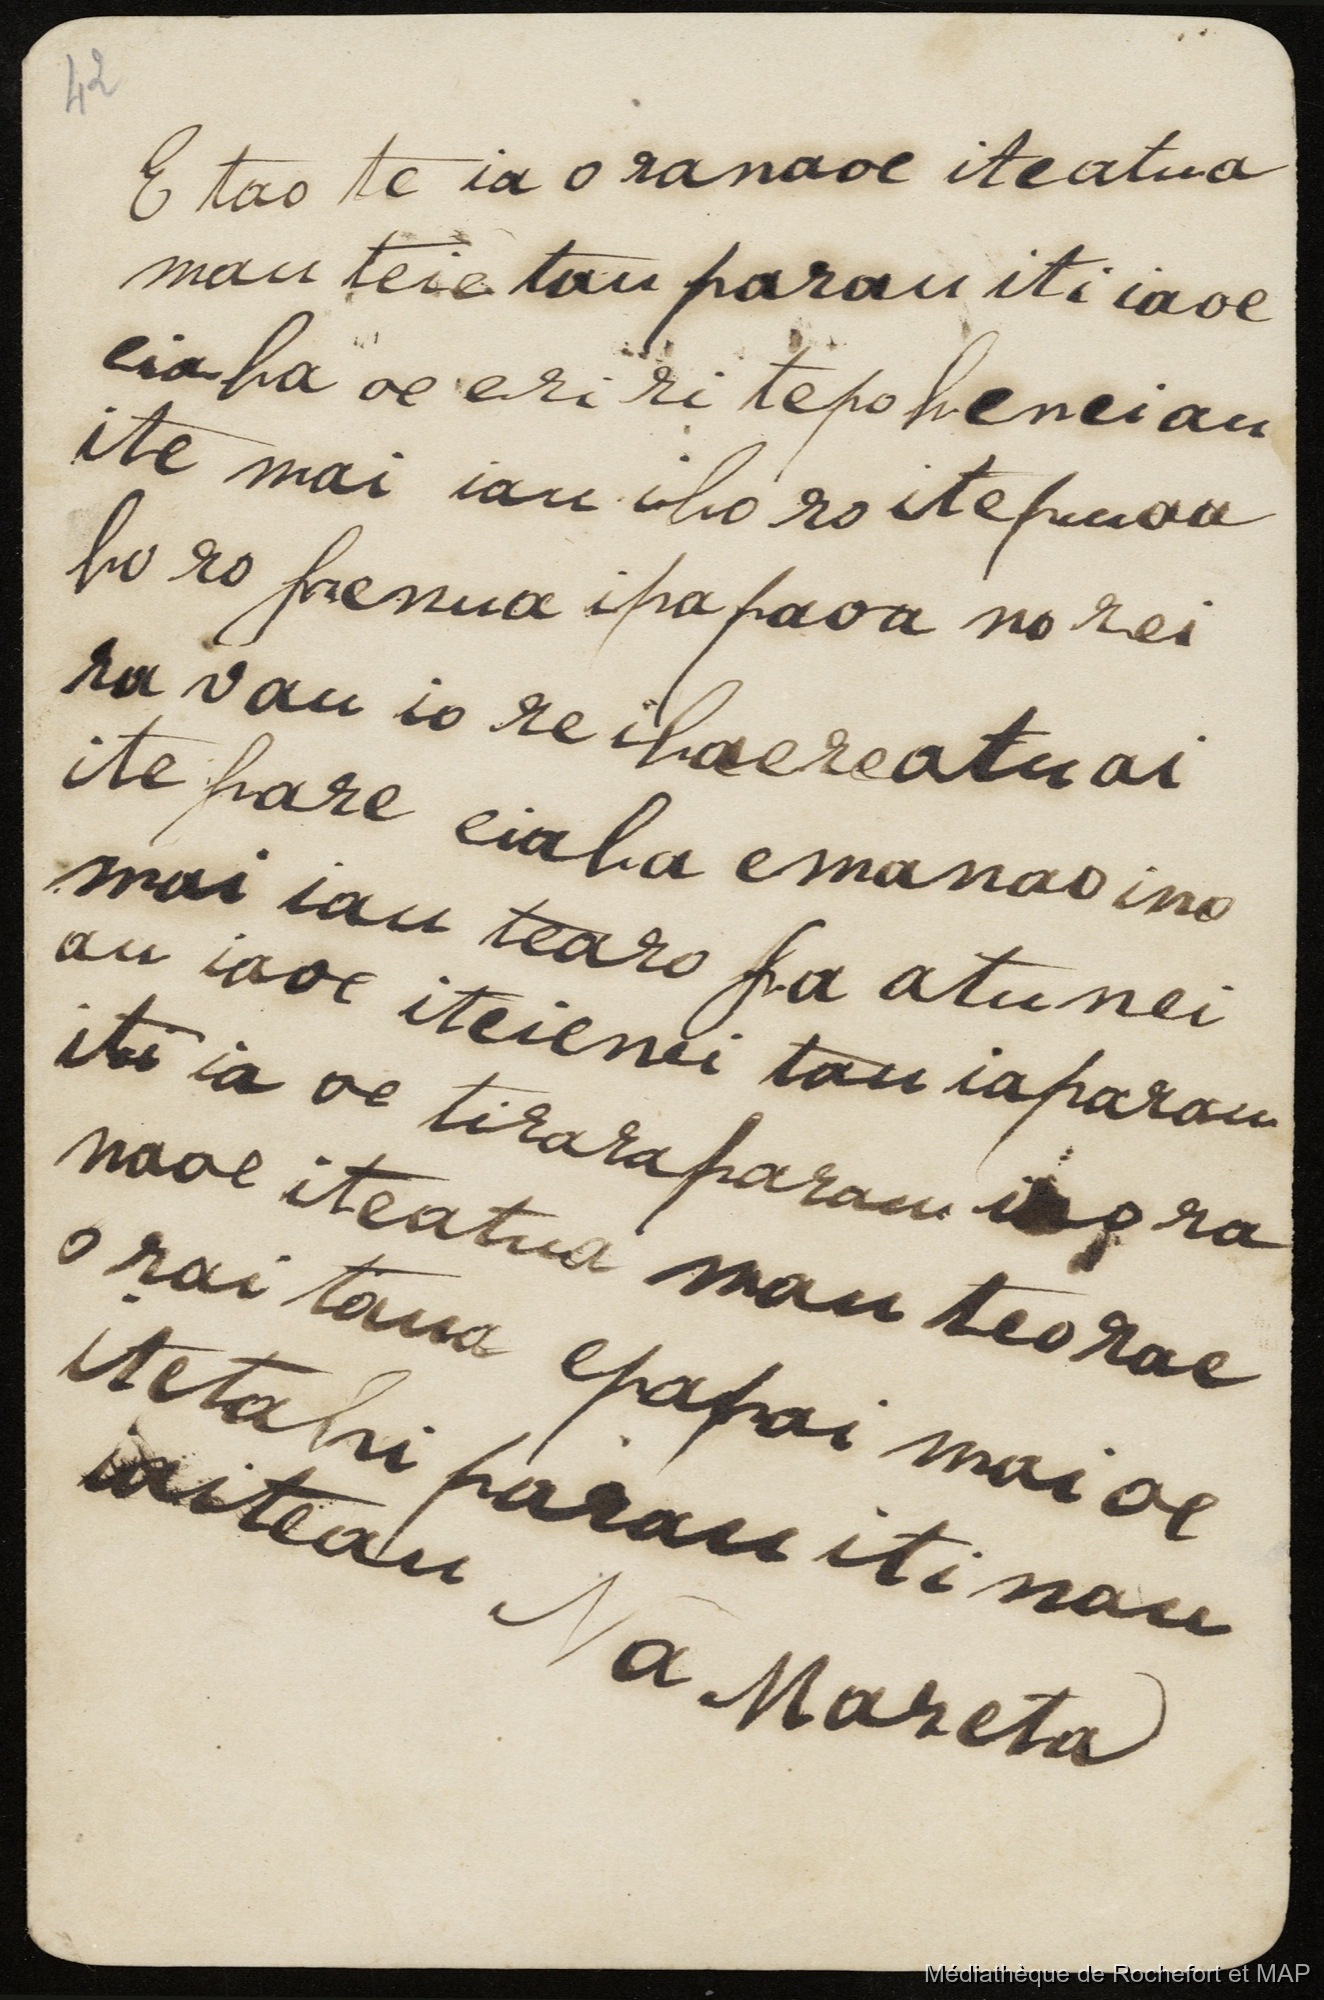 42
E tao te ia o ranaoe iteatua
mau teie tau parau iti iaoe
eiaha oe eri ri tepoheneiau
ite mai iau iho ro itepuaa
ho ro fenua ipapaoa no rei
ra vau io re ihaereatuai
ite pare eiaha emanao ino
mai iau tearo fa atunei
au iaoe iteienei tau iaparau
iti ia oe tiraraparau ia o ra
naoe iteatua mau teorae
o rai taua epapai mai oe
itetahi parau iti nau
iaiteau Na Mareta
Médiathèque de Rochefort et MAP